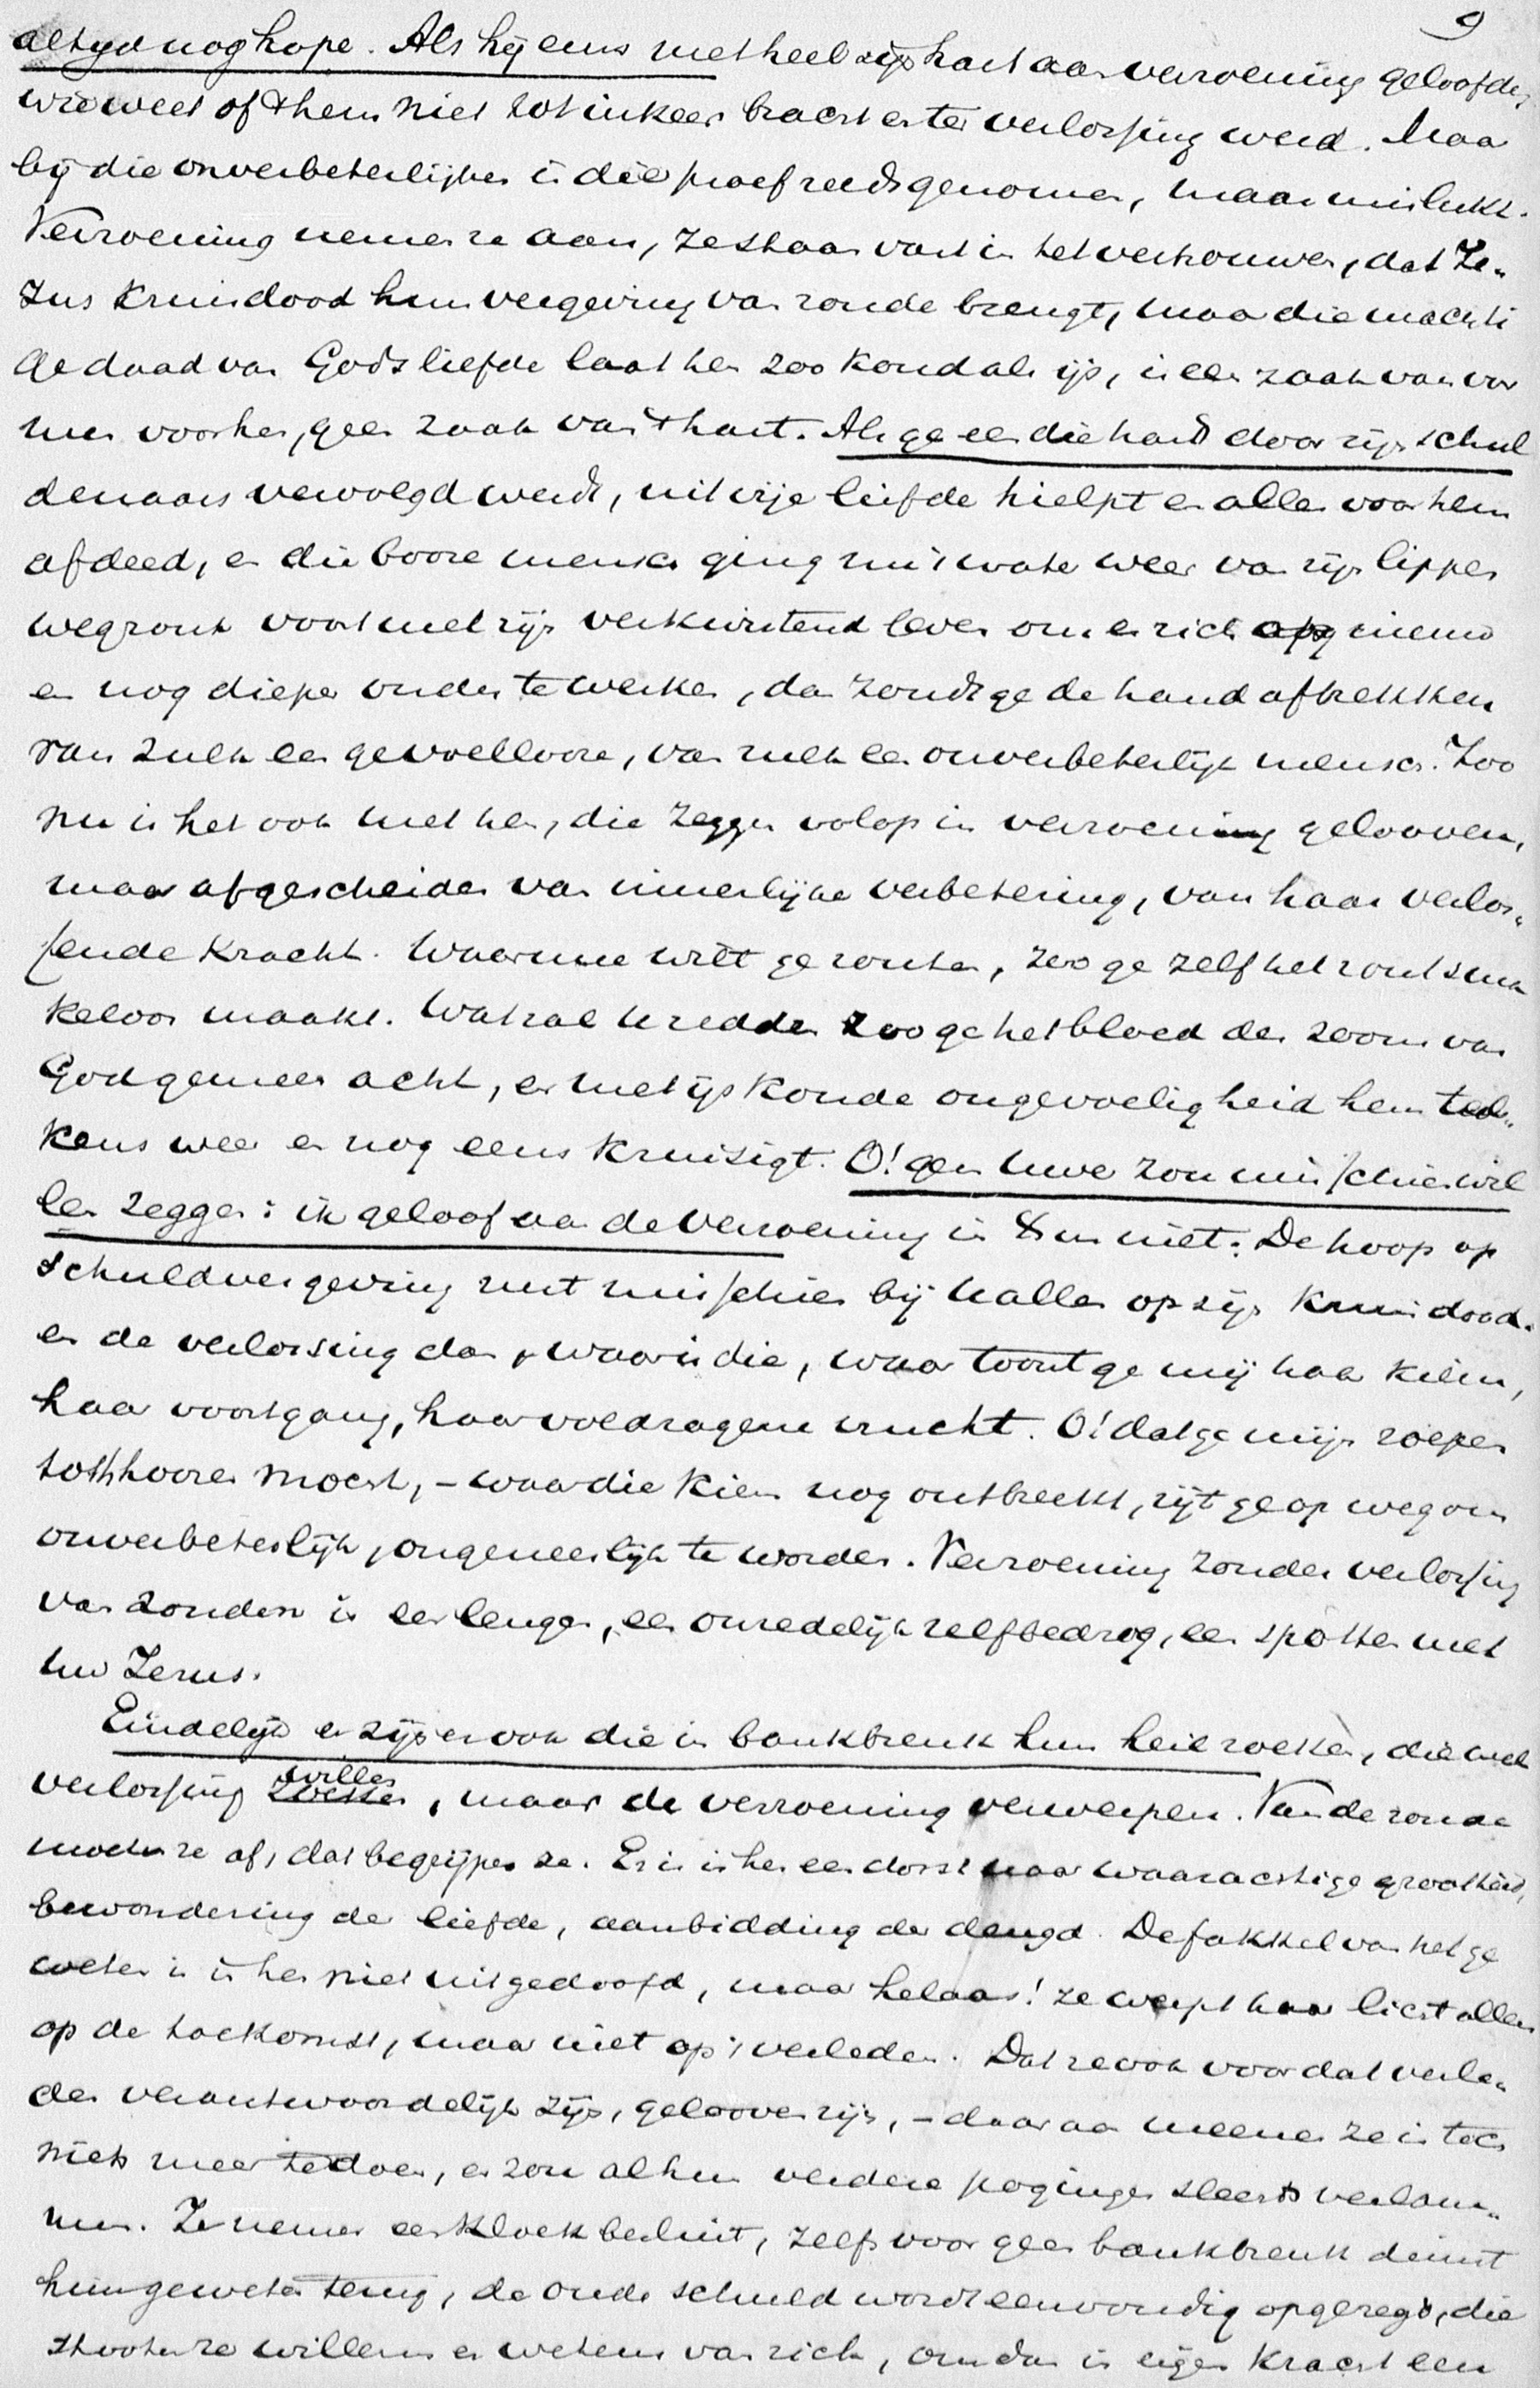 9
altyd nog hope. Als hij eens met heel zijn hart aan verzoening geloofde,
wie weet of 't hem niet tot inkeer bracht en ter verlossing werd. Maar
bij die onverbeterlijken is die proef reeds genomen, maar mislukt.
Verzoening nemen ze aan, ze staan vast in het vertrouwen, dat Je„
zus kruisdood hun vergeving van zonde brengt, maar die machti
ge daad van Gods liefde laat hen zoo koud als ijs, is een zaak van vor
men voor hen, geen zaak van 't hart. Als ge een die hard door zijn schul
denaars vervolgd werdt, uit vrije liefde hielpt en alles voor hem
afdeed, en die booze mensch ging nu 't water weer van zijn lippen
wegzonk voort met zijn verkwistend leven om er zich opnieuw
en nog dieper onder te werken, dan zoudt ge de hand aftrekken
van zulk een gevoellooze, van zulk een onverbeterlijk mensch. Zoo
nu is het ook met hen, die zeggen volop in verzoening gelooven,
maar afgescheiden van innerlijke verbetering, van haar verlos„
sende kracht. Waarmee wilt ge zouten, zoo ge zelf het zout sma
keloos maakt. Wat zal u redden zoo ge het bloed des zoons van
God gemeen acht, en met ijskoude ongevoeligheid hem tel„
kens weer en nog eens kruisigt. O! geen uwer zou misschien wil
len zeggen: ik geloof van de verzoening in X<sup>us</sup> niet. De hoop op
schuldvergeving rust misschien bij u allen op zijn kruisdood.
en de verlossing dan, waar is die, waar toont ge mij haar kiem,
haar voortgang, haar voldragene vrucht. O! dat ge mijn roepen
tot 't hooren mocht, – waar die kiem nog ontbreekt, zijt ge op weg om
onverbeterlijk, ongeneeslijk te worden. Verzoening zonder verlossing
van zonden is een leugen, een onredelijk zelfbedrog, een spotten met
uw Jezus.
Eindelijk er zijn er ook die in bankbreuk hun heil zoeken, die wel
verlossing willen, maar de verzoening verwerpen. Van de zonde
moeten ze af, dat begrijpen ze. Er is in hen een dorst naar waarachtige grootheid,
bewondering der liefde, aanbidding der deugd. De fakkel van het ge
weten is in hen niet uitgedoofd, maar helaas! ze werpt haar licht alleen
op de toekomst, maar niet op 't verleden. Dat ze ook voor dat verle„
den verantwoordelijk zijn, gelooven zij, – daaraan meenen ze is toch
niets meer te doen, en zou al hun verdere pogingen slechts verlam„
men. Ze nemen een kloek besluit, zelfs voor geen bankbreuk deinst
hun geweten terug, de oude schuld wordt eenvoudig opgezegd, die
stooten ze willens en wetens van zich, om dan in eigen kracht een